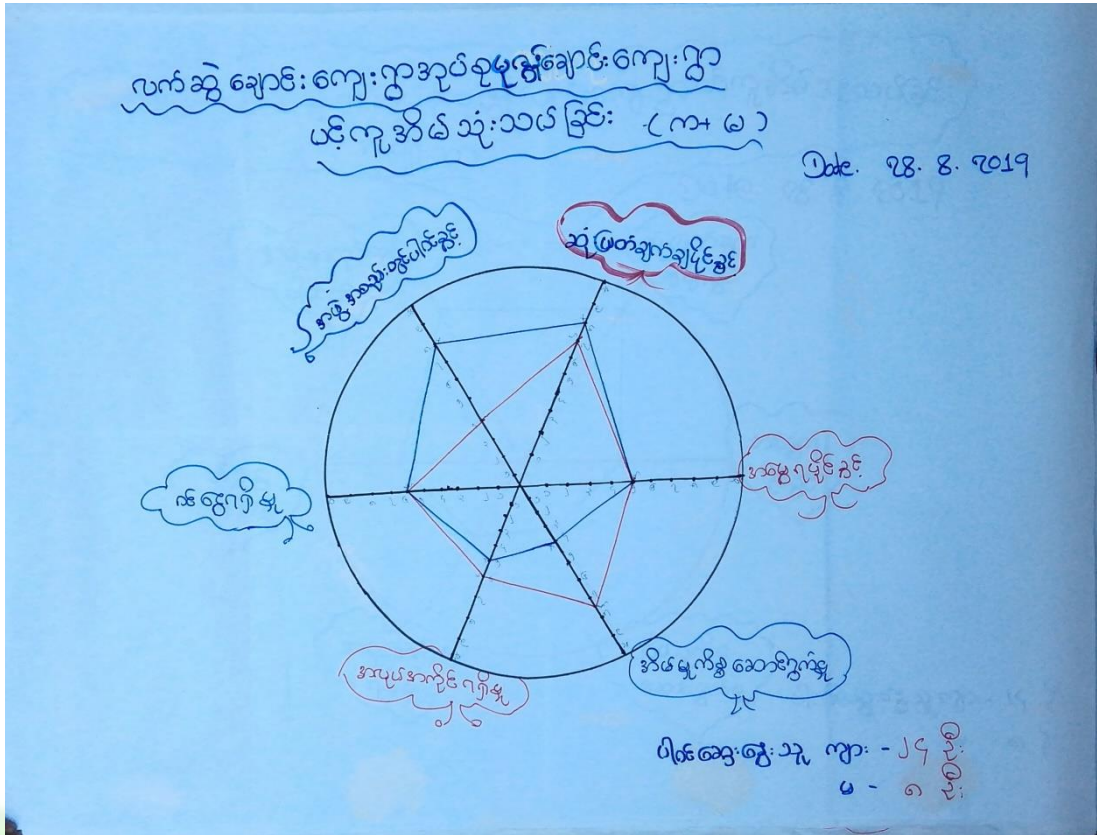 လက်ဆွဲချောင်းကျေးရွာအုပ်စုမုန့်ချောင်းကျေးရွာ
ပင့်ကူအိမ်သုံးသပ်ခြင်း (ကျ + မ)
Date. 28. 8. 2019
အဖွဲ့အစည်းတွင်ပါဝင်ခွင့်
ဆုံးဖြတ်ချက်ချပိုင်ခွင့်
အမွေရပိုင်ခွင့်
ဝင်ငွေရရှိမှု
အလုပ်အကိုင်ရရှိမှု
အိမ်မှုကိစ္စဆောင်ရွက်မှု
ပါဝင်ဆွေးနွေးသူ ကျား - ၂၄ ဦး
မ - ၈ ဦး